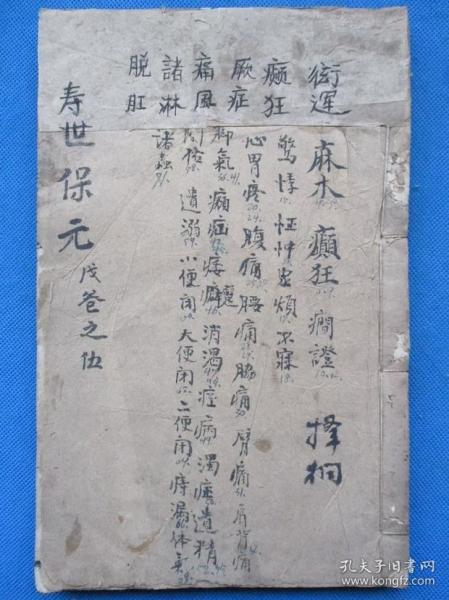 衒運
癲狂
厥症
痛風
諸淋
脱肛
麻木 癲狂 癇證 擇桐
驚悸 怔忡 虚煩 不寐
心胃疼 腹痛 腰痛 脇痛 臂痛 肩背痛
脚氣 㿗疝 痿躄 消渴 痙病 濁症 遺精
遺溺 小便閉 大便閉 二便閉 痔漏 体氣
諸蟲
寿世保元 戊卷之伍
孔夫子旧書网
www.kongfz.com